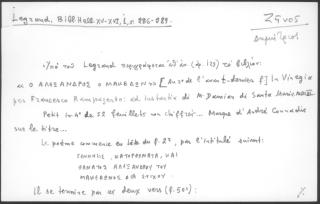 Legrand, Bibl. Hell. XV-XVI, I, σ 286-289.
Ζῆνος
Δημήτριος
Ὑπὸ τοῦ Legrand περιγράφεται (σ. 123) τὸ βιβλίον:
Ο ΑΛΕΞΑΝΔΡΟΣ Ο ΜΑΚΕΔΩΝ [Au 2º de l'avant-dernier f] In Vinegia
per Francesco Rampazetto: ad instantia di M. Damian di Santa Maria
Petit in 4º de 52 feuillets non chiffrés... Marque d'André Counadis
sur le titre...
Le poème commence en tête du f. 2º, par l'intitulé suivant:
ΓΕΝΝΗΣΙΣ, ΚΑΤΟΡΘΩΜΑΤΑ, ΚΑΙ
ΘΑΝΑΤΟΣ ΑΛΕΞΑΝΔΡΟΥ ΤΟΥ
ΜΑΚΕΔΟΝΟΣ ΔΙΑ ΣΤΙΧΟΥ
Il se termine par ces deux vers (f. 50º):